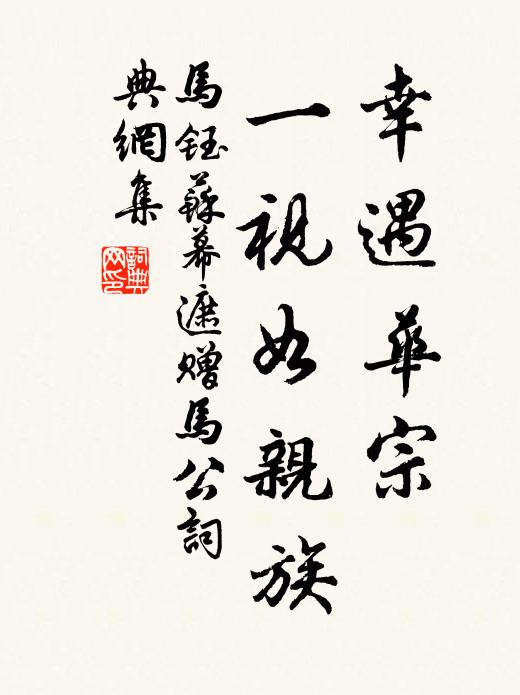 幸遇華宗
一視如親族
馬鈺蘇幕遮贈馬公詞
典網集
詞典網印